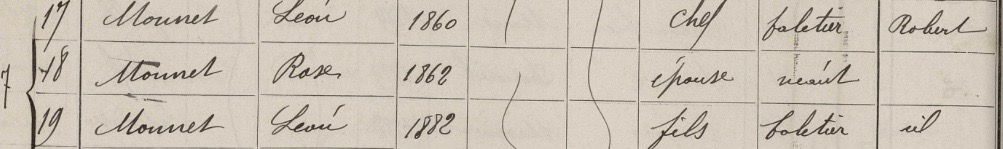 17 Mounet Léon 1860 chef galetier Robert
7 18 Mounet Rose 1862 épouse néant
19 Mounet Léon 1882 fils galetier id